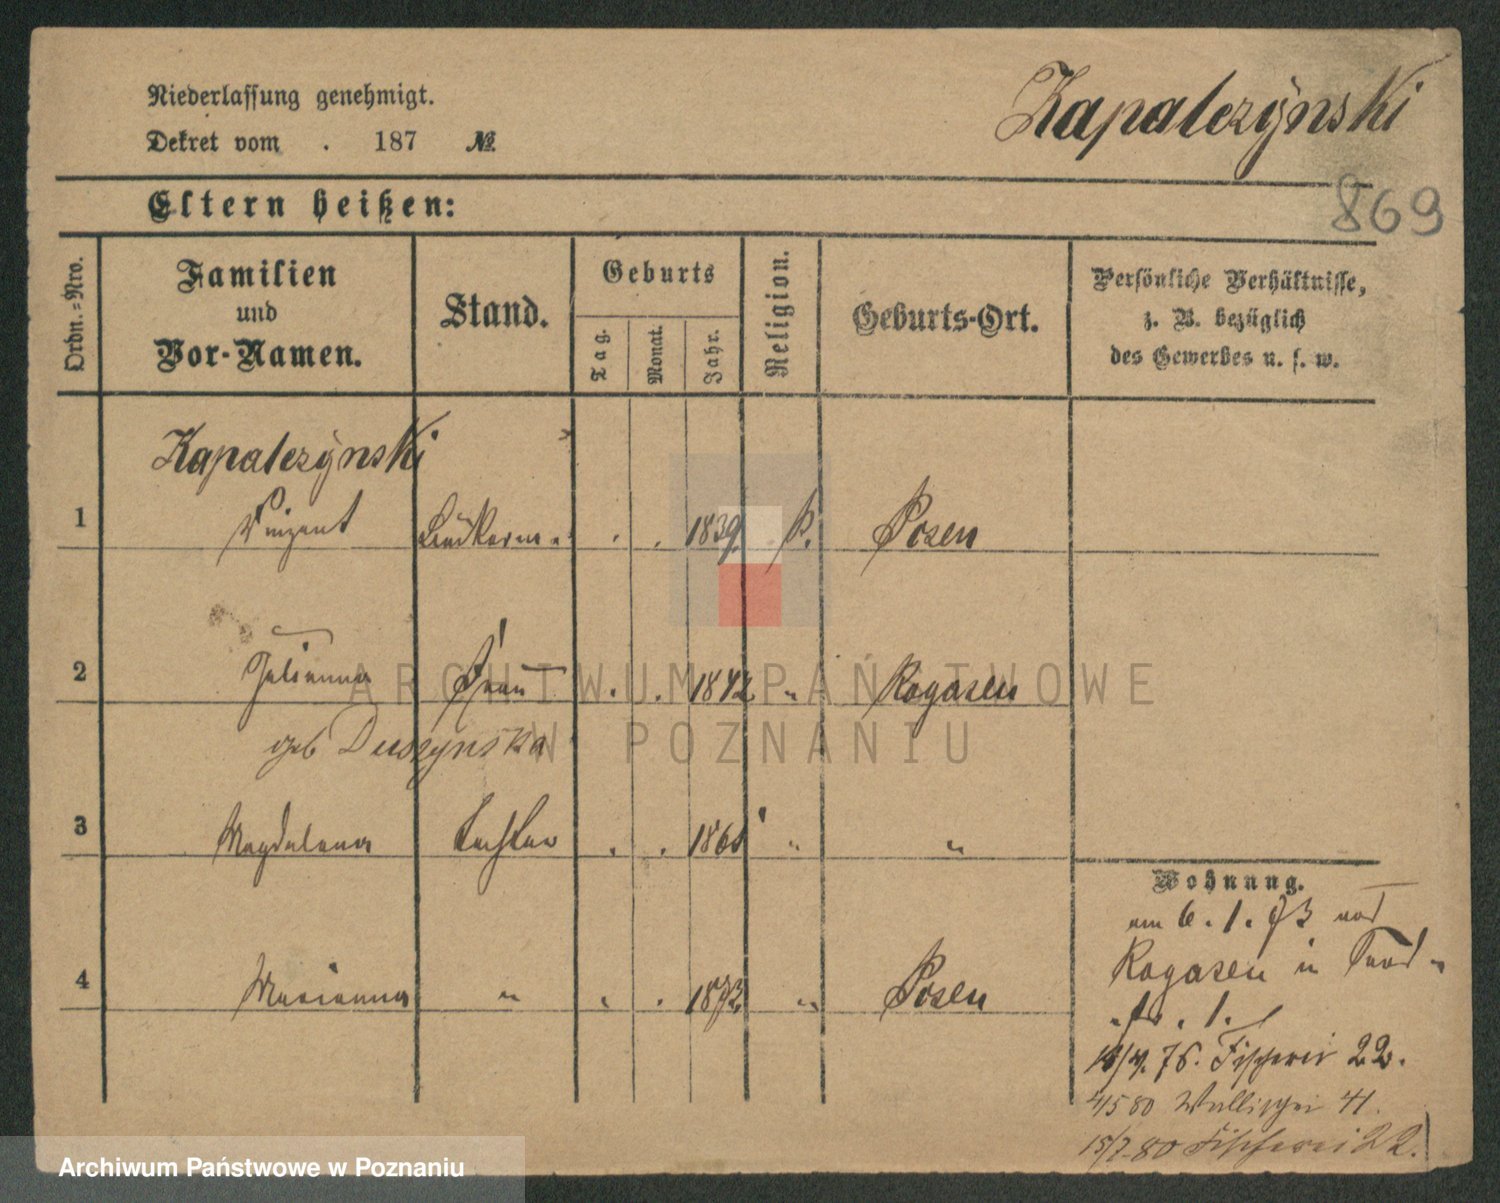 Niederlassung genehmigt.
Dekret vom . 187 №
Kapalczÿnski
869
Eltern heißen:
Ordn.=Nro.
Familien
und
Vor-Namen.
Stand.
Geburts
Tag.
Monat.
Jahr.
Religion.
Geburts-Ort.
Persönliche Verhältnisse,
z. B. bezüglich
des Gewerbes u. s. w.
Kapalczÿnski
1 Vinzent . . 1839. k. Posen
2 Julianna Frau . . 1842 " Rogasen
geb Duszynska
3 Magdalena Tochter . . 1868 " "
4 Marianna " . . 1873 " Posen
Wohnung.
am 6. 1. 73 von
Rogasen in
1.
76. Fischerei 22.
4/5 80 Wallischei 41.
15/7-80 Fischerei 22.
ARCHIWUM PAŃSTWOWE
W POZNANIU
Archiwum Państwowe w Poznaniu